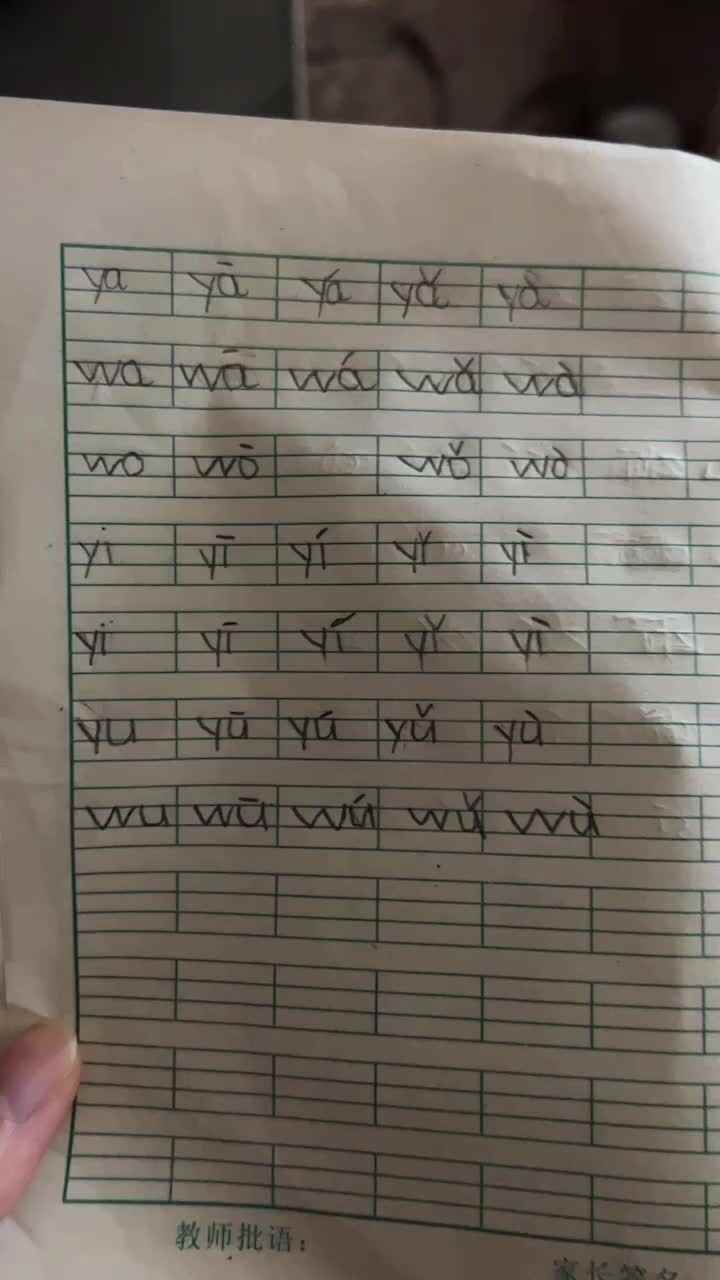 ya yā yá yǎ yà
wa wā wá wǎ wà
wo wō wǒ wò
yi yī yí yǐ yì
yi yī yí yǐ yì
yu yū yú yǔ yù
wu wū wú wǔ wù
教师批语：
家长签名